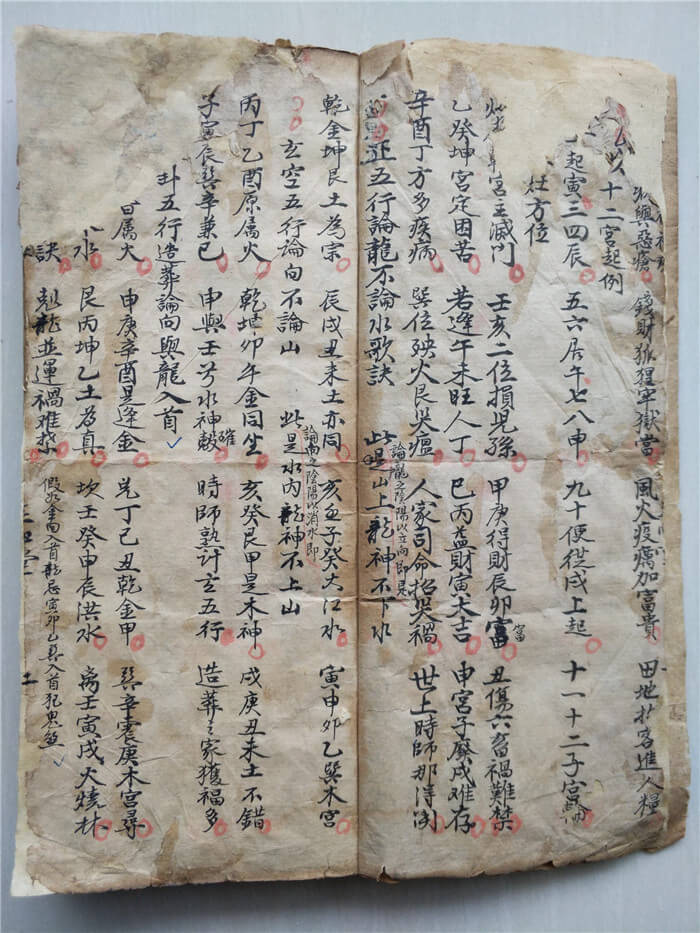 瘟瘡 錢財孤猩牢獄當 風火疫癘加富貴 田地招客進人糧
十二宮起例
起寅三四辰 五六居午七八申 九十便從戌上起 十一十二子宮
灶方位
宮主滅門 壬亥二位損兒孫 甲庚得財辰卯富富 丑傷六畜禍難禁
乙癸坤宮定困苦 若逢午未旺人丁 巳丙益財寅大吉 申宮子癈戌难存
辛酉丁方多疾病 巽位殃火艮災瘟 人家司命招災禍 世上時師那得測
正五行論龍不論水歌訣 論龍之陰陽以立向即是 此昰山上龍神不下水
乾金坤艮土為宗 辰戌丑未土亦同 亥壬子癸大江水 寅申卯乙巽木宮
玄空五行論向不論山 論向之陰陽以消水即 此是水內龍神不上山
丙丁乙酉原属火 乾坤卯午金同生 亥癸艮甲是木神 戌庚丑未土不錯
子寅辰巽辛兼巳 申與壬兮水神 確 時師孰計玄五行 造葬之家獲福多
卦五行造葬論向與龍入首
属火 申庚辛酉是逢金 兌丁己丑乾金甲 巽辛震庚木宮尋
水 艮丙坤乙土为真 坎壬癸申辰洪水 离壬寅戌火燒林
訣 剋龍並運禍难禁 假如金向入首龍忌寅卯乙巽入首犯鬼煞